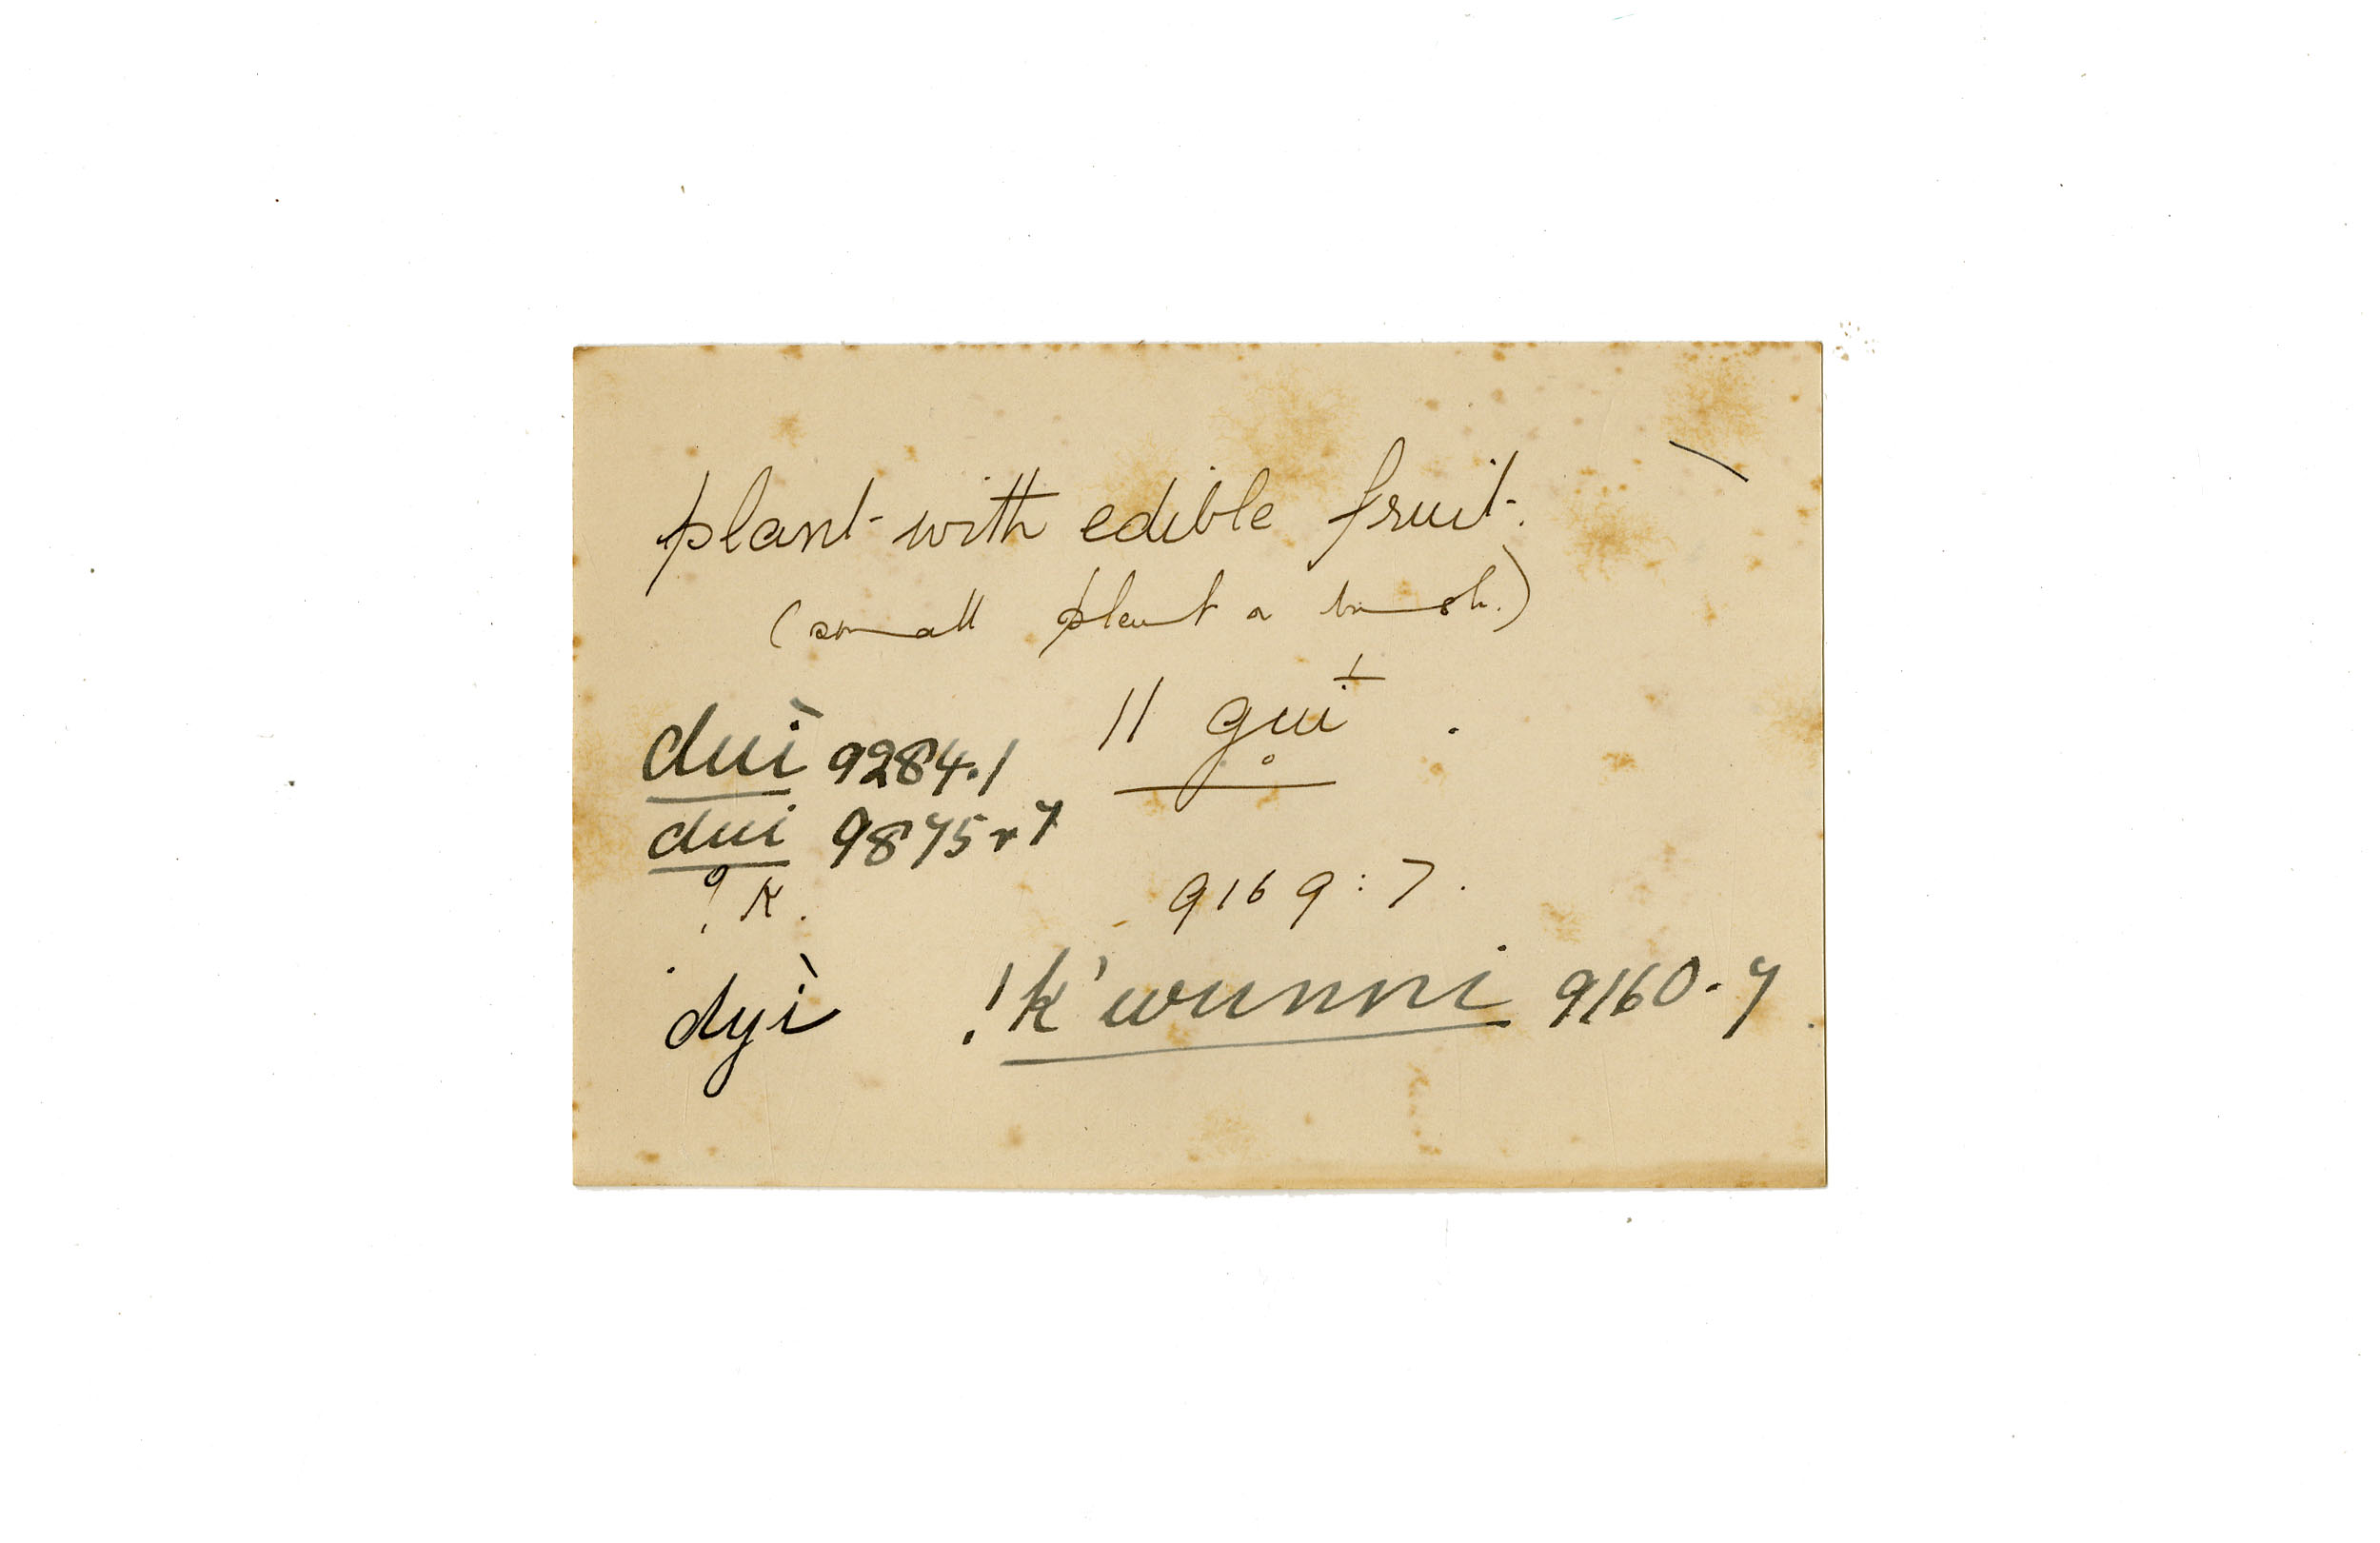 plant with edible fruit.
(small plant a bush.)
duì 9284.1 || gui
dui 9875r7
? K. 9169:7.
dyì !k'wunni 9160.7